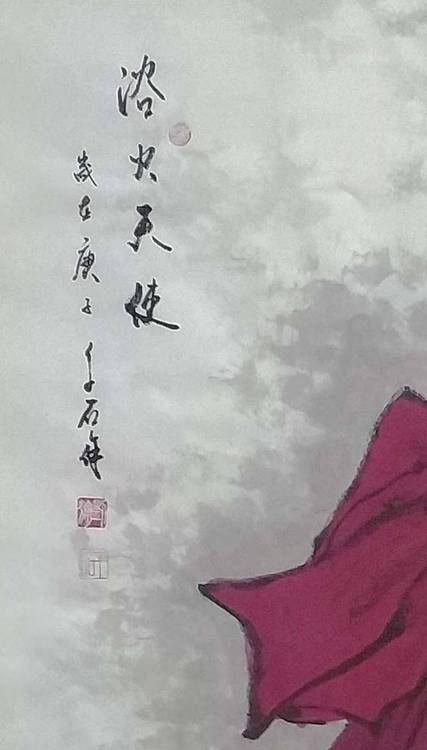 浴火天使
歲在庚子
石